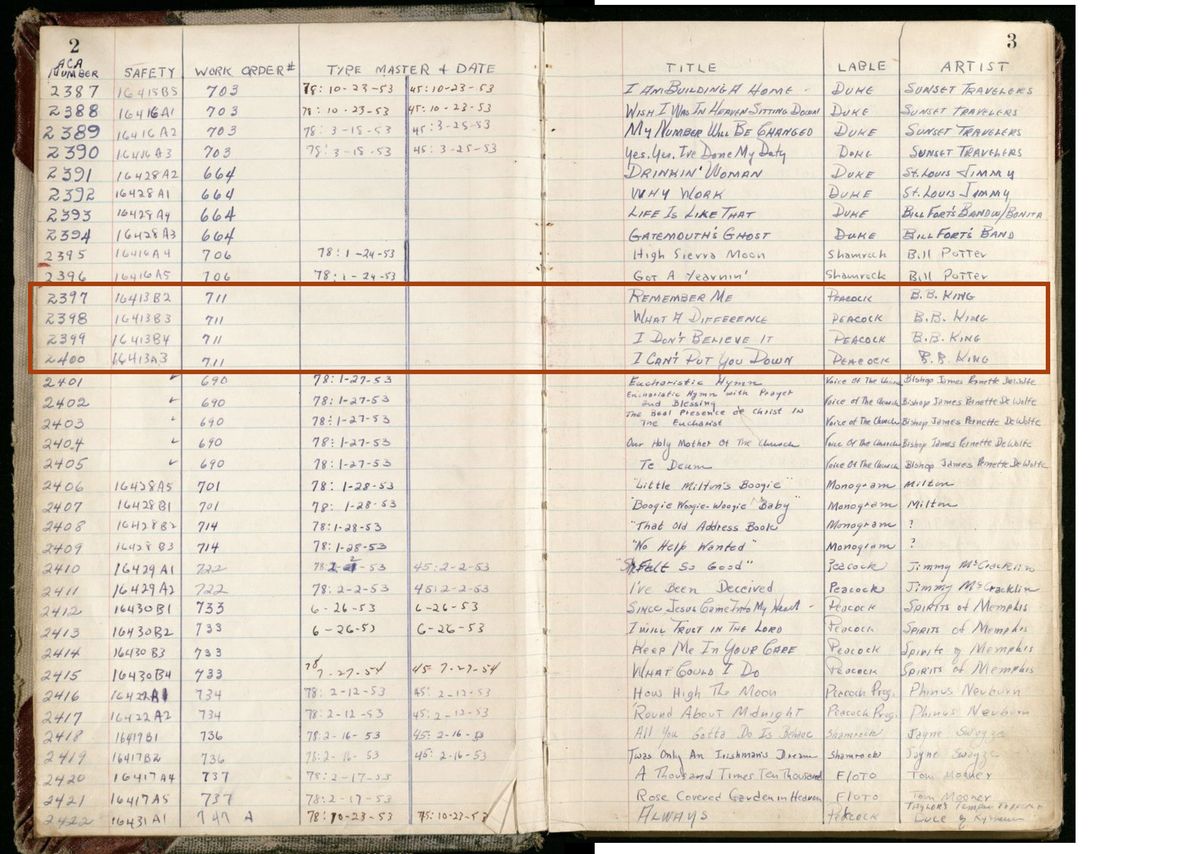 2 3
ACA NUMBER SAFETY WORK ORDER# TYPE MASTER & DATE TITLE LABLE ARTIST
2387 16415B5 703 78: 10-23-53 45: 10-23-53 I AM BUILDING A HOME - DUKE SUNSET TRAVELERS
2388 16416A1 703 78: 10-23-53 45: 10-23-53 WISH I WAS IN HEAVEN SITTING DOWN DUKE SUNSET TRAVELERS
2389 16416A2 703 78: 3-15-53 45: 3-25-53 MY NUMBER WILL BE CHANGED DUKE SUNSET TRAVELERS
2390 16416A3 703 78: 3-15-53 45: 3-25-53 Yes, Yes, I've Done My Duty DUKE SUNSET TRAVELERS
2391 16428A2 664 DRINKIN' WOMAN DUKE St. Louis JIMMY
2392 16428A1 664 WHY WORK DUKE St. Louis JIMMY
2393 16428A4 664 LIFE IS LIKE THAT DUKE BILL FORT'S BAND W/BONITA
2394 16428A3 664 GATEMOUTH'S GHOST DUKE BILL FORT'S BAND
2395 16416A4 706 78: 1-24-53 High Sierra Moon Shamrock Bill Potter
2396 16416A5 706 78: 1-24-53 Got A Yearnin' Shamrock Bill Potter
2397 16413B2 711 REMEMBER ME PEACOCK B.B. KING
2398 16413B3 711 WHAT A DIFFERENCE PEACOCK B.B. KING
2399 16413B4 711 I DON'T BELIEVE IT PEACOCK B.B. KING
2400 16413A3 711 I CAN'T PUT YOU DOWN PEACOCK B.B. KING
2401 ✓ 690 78: 1-27-53 Eucharistic Hymn Voice Of The Church Bishop James Pernette DeWolfe
2402 690 78: 1-27-53 Eucharistic Hymn with Prayer and Blessing Voice Of The Church Bishop James Pernette DeWolfe
2403 ✓ 690 78: 1-27-53 The Real Presence of Christ In The Eucharist Voice Of The Church Bishop James Pernette DeWolfe
2404 ✓ 690 78: 1-27-53 Our Holy Mother Of The Church Voice Of The Church Bishop James Pernette DeWolfe
2405 ✓ 690 78: 1-27-53 Te Deum Voice Of The Church Bishop James Pernette DeWolfe
2406 16428A5 701 78: 1-28-53 "Little Milton's Boogie" Monogram Milton
2407 16428B1 701 78: 1-28-53 "Boogie Woogie-Woogie Baby" Monogram Milton
2408 16428B2 714 78: 1-28-53 "That Old Address Book" Monogram ?
2409 16428B3 714 78: 1-28-53 "No Help Wanted" Monogram ?
2410 16429A1 722 45: 2-2-53 Felt So Good" Peacock Jimmy McCracklin
2411 16429A2 722 78: 2-2-53 45: 2-2-53 I've Been Deceived Peacock Jimmy McCracklin
2412 16430B1 733 6-26-53 6-26-53 SINCE JESUS CAME INTO MY HEART - Peacock SPIRITS of MEMPHIS
2413 16430B2 733 6-26-53 6-26-53 I WILL TRUST IN THE LORD Peacock SPIRITS of MEMPHIS
2414 16430B3 733 KEEP ME IN YOUR CARE Peacock Spirits of Memphis
2415 16430B4 733 78 7-27-54 45 7-27-54 WHAT COULD I DO Peacock SPIRITS of MEMPHIS
2416 16422A1 734 78: 2-12-53 45: 2-12-53 How High The Moon Peacock Prog. Phinus Newburn
2417 16422A2 734 78: 2-12-53 45: 2-12-53 'Round About Midnight Peacock Prog. Phinus Newburn
2418 16417B1 736 78: 2-16-53 45: 2-16-53 All You Gotta Do Is Behave Shamrock Jayne Swayze
2419 16417B2 736 78: 2-16-53 45: 2-16-53 Twas Only An Irishman's Dream Shamrock Jayne Swayze
2420 16417A4 737 78: 2-17-53 A Thousand Times Ten Thousand FLOTO Tom Mooner
2421 16417A5 737 78: 2-17-53 Rose Covered Garden in Heaven FLOTO Tom Mooner
2422 16431A1 747 A 78: 10-23-53 45: 10-23-53 ALWAYS Peacock